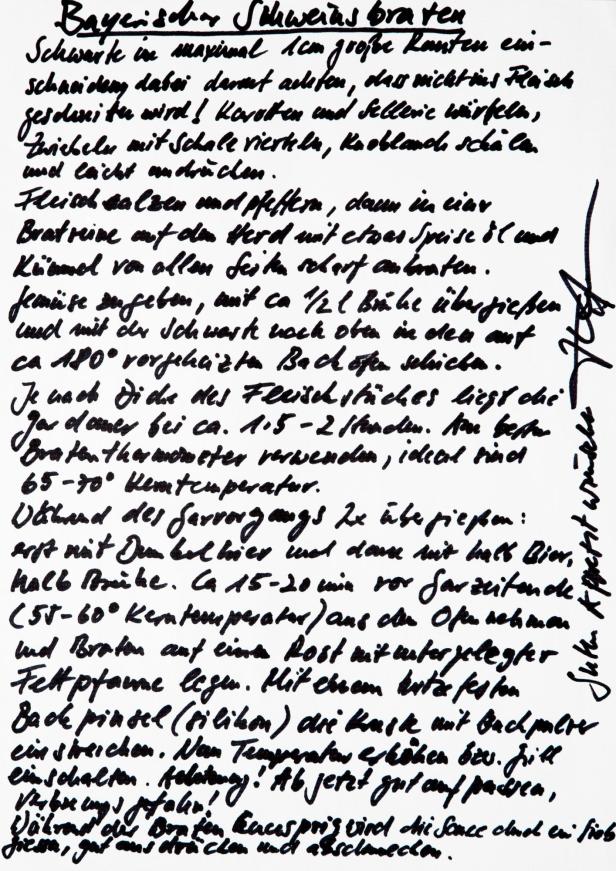 Bayerischer Schweinsbraten
Schwarte in maximal 1cm große Rauten ein-
schneiden, dabei darauf achten, dass nicht ins Fleisch
geschnitten wird! Karotten und Sellerie würfeln,
Zwiebeln mit Schale vierteln, Knoblauch schälen
und leicht andrücken.
Fleisch salzen und pfeffern, dann in einer
Bratreine auf dem Herd mit etwas Speiseöl und
Kümmel von allen Seiten scharf anbraten.
Gemüse zugeben, mit ca 1/2 l Brühe übergießen
und mit der Schwarte nach oben in den auf
ca 180° vorgeheizten Backofen schieben.
Je nach Dicke des Fleischstückes liegt die
Gardauer bei ca. 1.5 - 2 Stunden. Am besten
Bratenthermometer verwenden, ideal sind
65-70° Kerntemperatur.
Während des Garvorgangs 2x übergießen:
erst mit Dunkelbier und dann mit halb Bier,
halb Brühe. Ca 15-20 min vor Garzeitende
(55-60° Kerntemperatur) aus dem Ofen nehmen
und Braten auf einen Rost mit untergelegter
Fettpfanne legen. Mit einem hitzefesten
Backpinsel (Silikon) die Kruste mit Backpulver
einstreichen. Nun Temperatur erhöhen bzw. Grill
einschalten. Achtung! Ab jetzt gut aufpassen,
Verbrennungsgefahr!
Während der Braten knusprig wird die Sauce durch ein Sieb
giessen, gut ausdrücken und abschmecken.
Guten Appetit wünscht